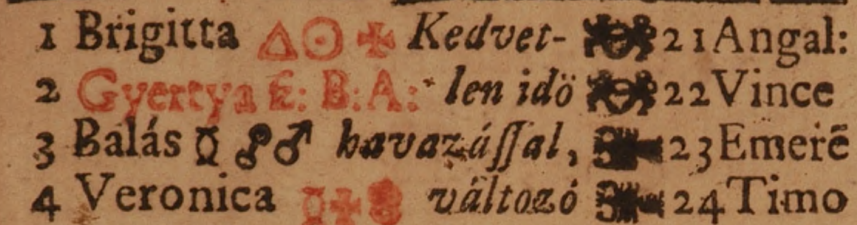 1 Brigitta △☉✠ Kedvet- 21 Angal:
2 Gyertya ſz: B: A: len idö 22 Vince
3 Balás ☿ ☍ ♂ havazáſſal, 23 Emerē
4 Veronica változó 24 Timo